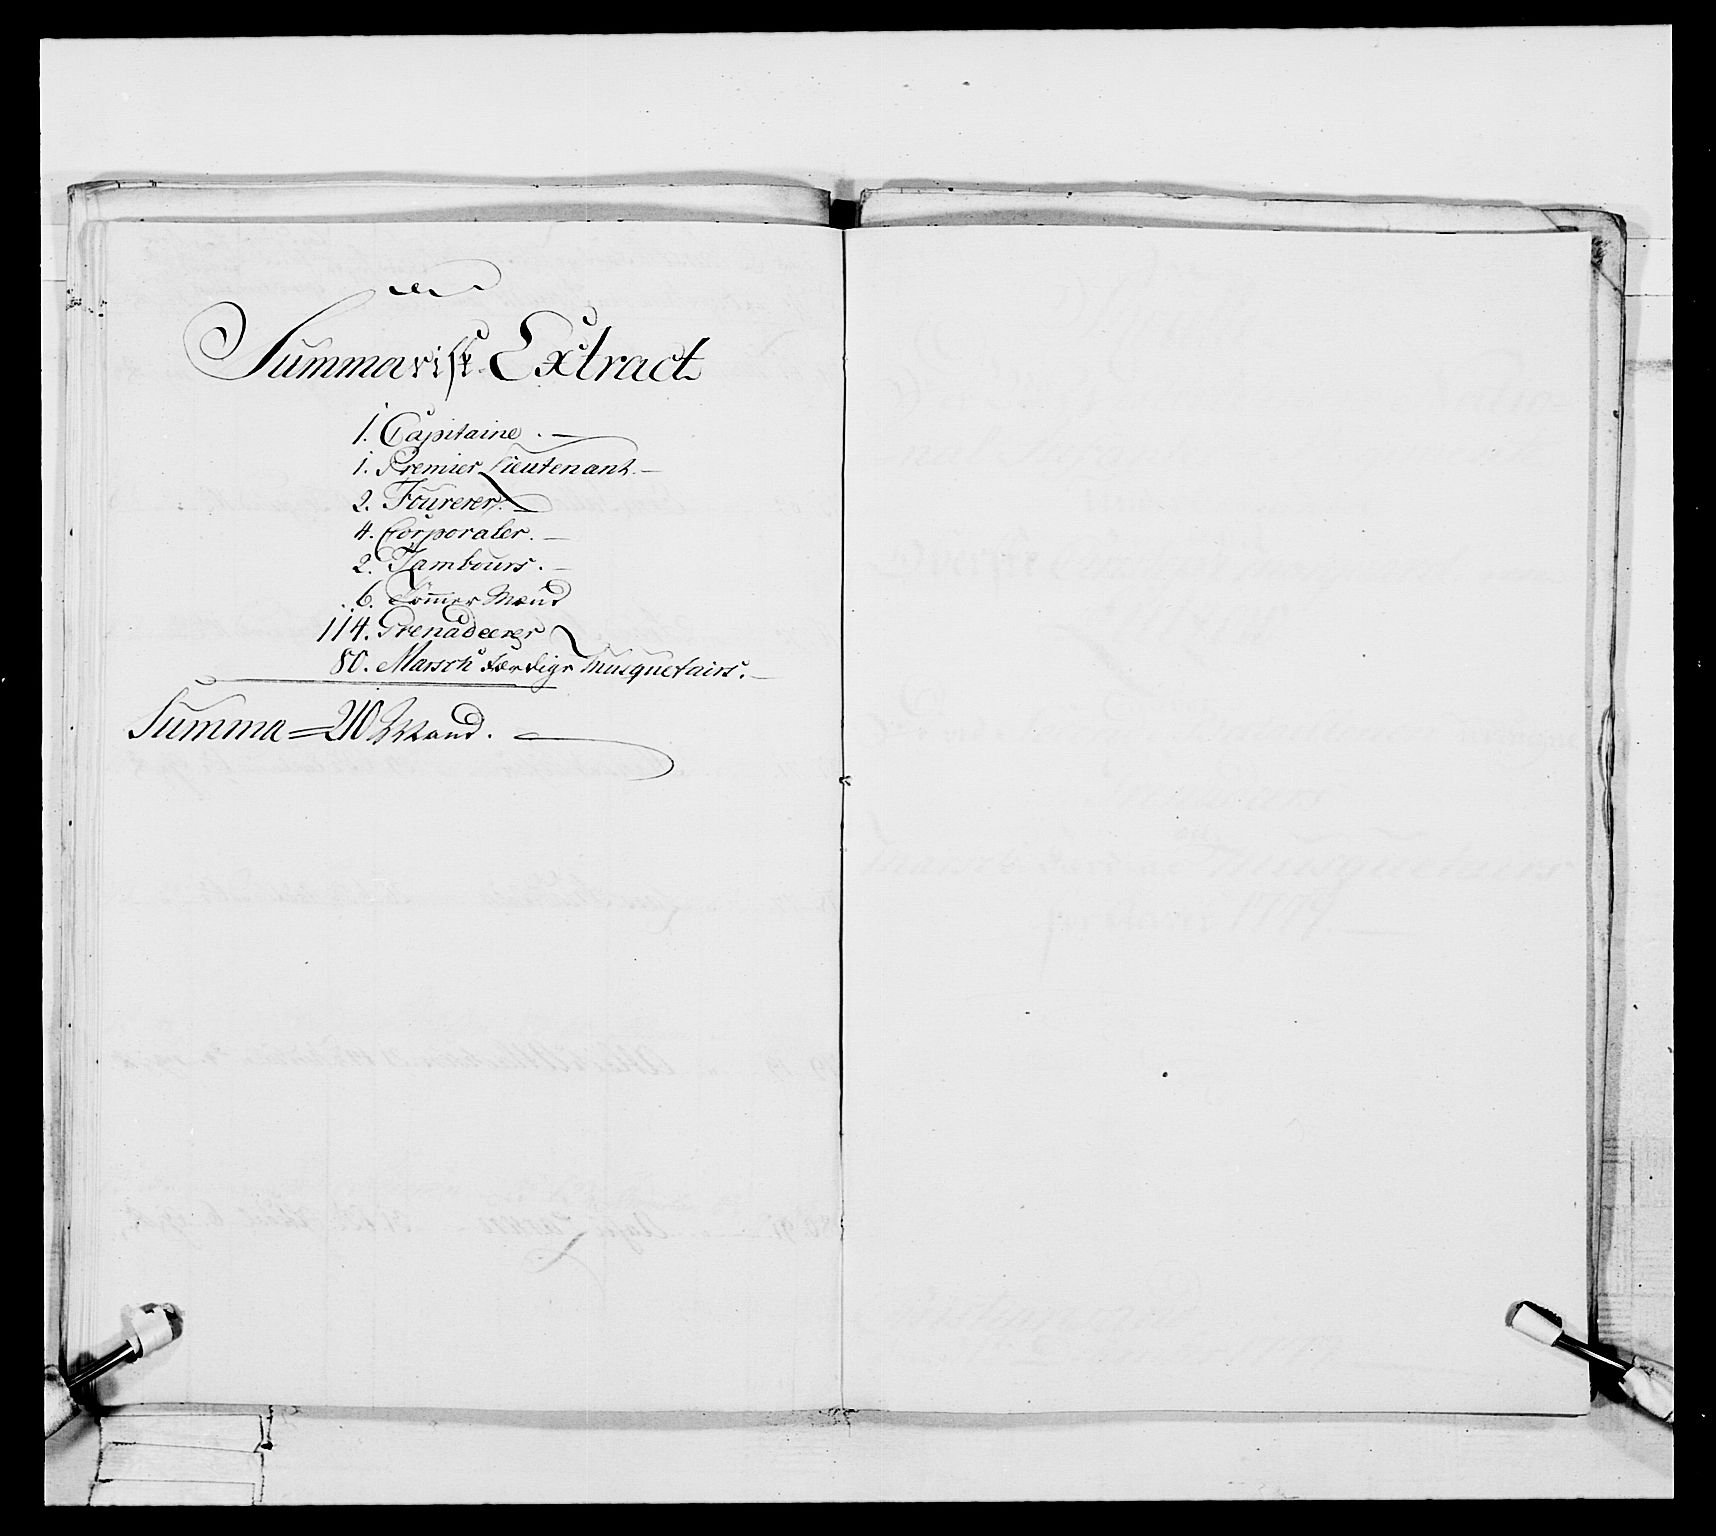 Summarisk Extract
1. Capitaine.
1. Premier Lieutenant.
2. Fourerer.
4. Corporaler.
2. Tambours.
6. Tömmer Mænd
114. Grenadeerer
80. Marsch færdige Musquetairs.
Summa = 210 Mand.